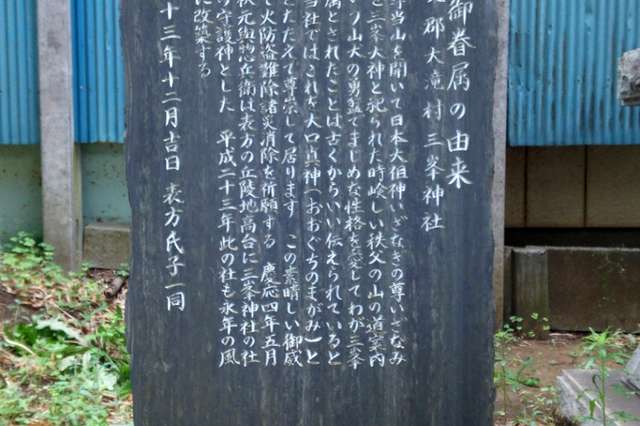 御眷属の由来
郡大滝村 三峯神社
当山を開いて日本大伯神いざなぎの尊いざなみ
三峯大神と祀られた時嶮しい秩父の山の道案内
山犬の勇猛でまじめな性格を愛してわが三峯
属とされたことは古くからいい伝えられていると
当社ではこれを大口真神(おおぐちのまがみ)と
たたえて尊崇して居ります この素晴しい御威
火防盗難除諸災消除を祈願する 慶応四年五月
秋元與惣兵衛は表方の丘陵地高台に三峯神社の社
守護神とした 平成二十三年此の社も永年の風
に改築する
十三年十二月吉日 表方氏子一同